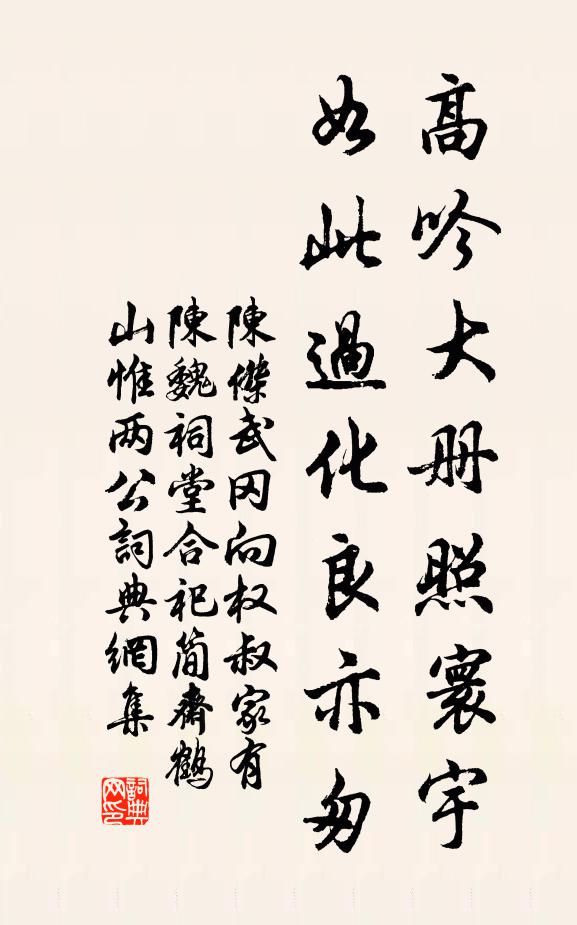 高吟大册照寰宇
如此過化良亦匆
陳傑武冈向权叔家有
陳魏祠堂合祀简齋鶴
山惟两公詞典網集
詞典网印